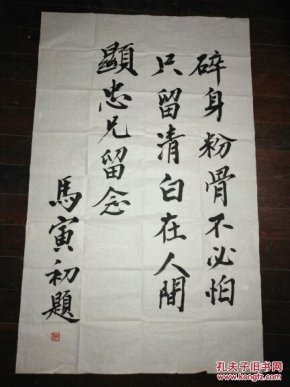 碎身粉骨不必怕
只留清白在人間
顯忠兄留念
馬寅初題
孔夫子旧书网